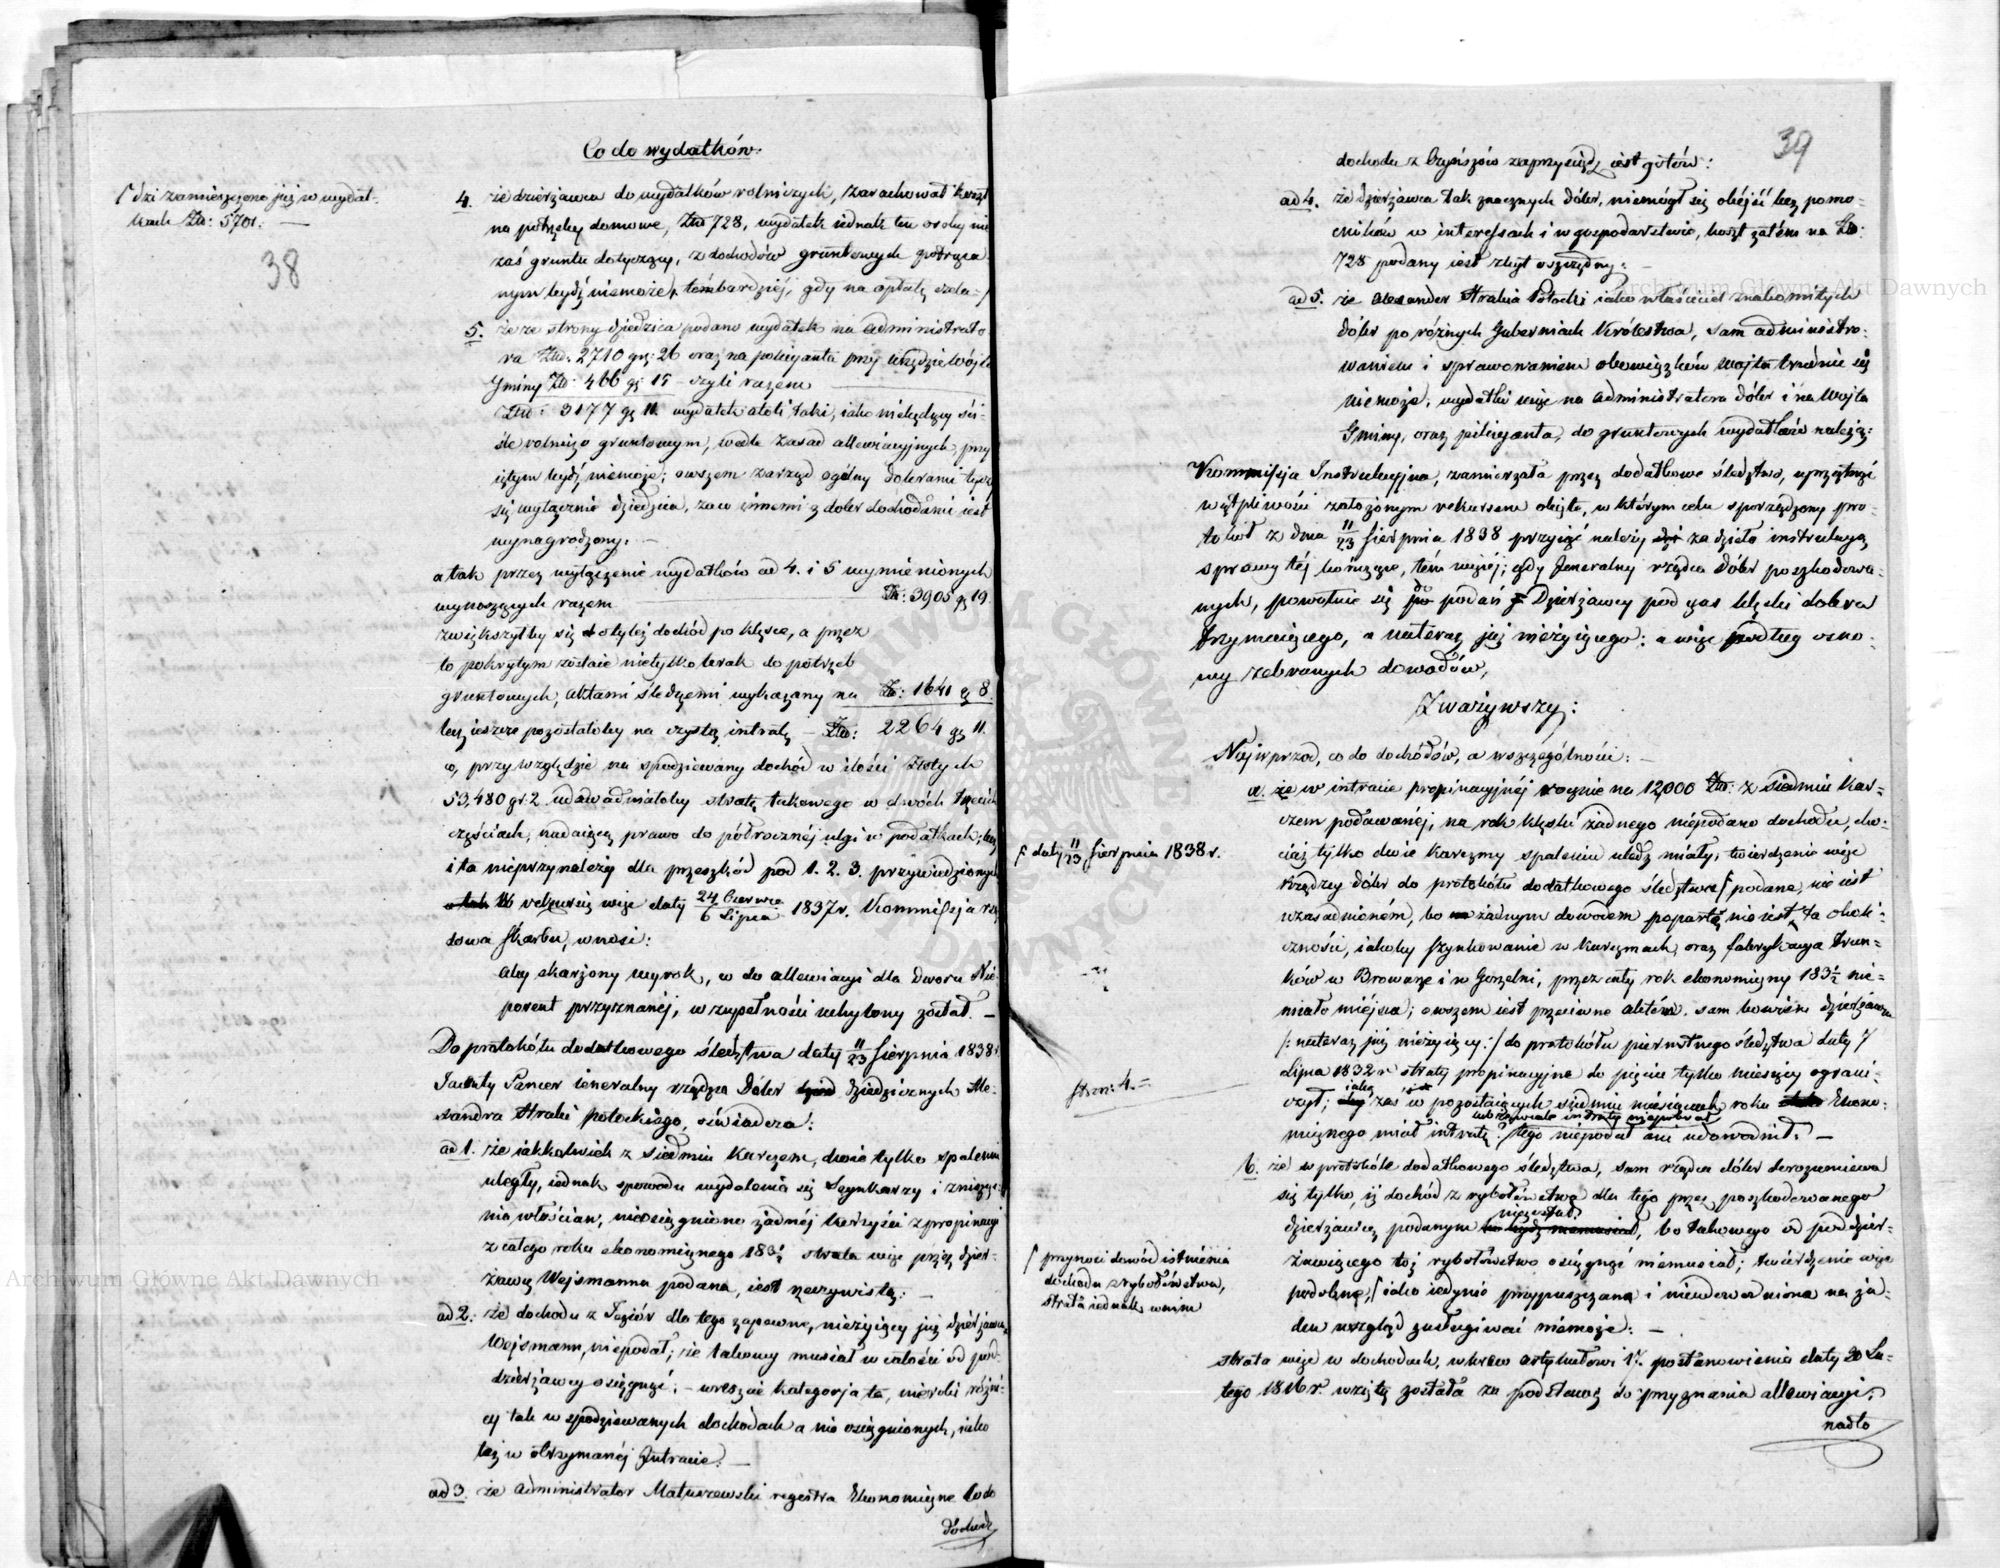 38
/ dzi zamieszczono już w wydat-
kach Złt: 5701. —
Co do wydatków.
4. że dzierżawca do wydatków rolniczych, zarachował koszt
na potrzeby domowe, Złt 728, wydatek jednak ten osoby nie
zaś gruntu dotyczący, z dochodów gruntowych potrąca-
nym bydź niemoże, tembardziéj, gdy na opłatę czela- /
5. że ze strony dziedzica podano wydatek na administrato-
ra Złt: 2710 gr: 26 oraz na policyanta przy urzędzie Wójta
Gminy Złt: 466 gr 15 – czyli razem —
Złt: 3177 gr 11. wydatek atoli taki, jako nielędący ści-
śle rolniczo gruntowym, wedle zasad allewiacyjnych, przy-
jętym bydź niemoże; owszem zarząd ogólny dobrami tycze
się wyłącznie dziedzica, za co innemi z dóbr dochodami jest
wynagrodzony. —
a tak przez wyłączenie wydatków ad 4. i 5 wymienionych
wynoszących razem Złt: 3905 gr 19
zwiększyłby się o tyleż dochód po klęsce, a przez
to pokrytym zostaie nietylko brak do potrzeb
gruntowych, aktami śledczemi wykazany na Złt: 1641 gr 8.
lecz ieszcze pozostałoby na czystą intratę – Złt: 2264 gr 11.
co, przy względzie na spodziewany dochód w ilości Złotych
53,480 gr. 2 udowadniałoby stratę takowego w dwóch trzecich
częściach, nadającą prawo do półrocznéj ulgi w podatkach, lecz
i ta nieprzynależy dla przeszkód pod 1. 2. 3. przywiedzionych
W rekursie więc daty 24 Czerwca / 6 Lipca 1837 r. Kommissja rzą-
dowa Skarbu, wnosi:
aby skarżony wyrok, co do allewiacyi dla Dworu Nie-
porent przyznanéj, w zupełności uchylony został. —
Do protokółu dodatkowego śledztwa daty 11/23 Sierpnia 1838 r.
Jacenty Pancer ieneralny rządca Dóbr dziedzicznych Ale-
xandra Hrabi Potockiego, oświadcza:
ad 1. że iakkolwiek z siedmiu karczem, dwie tylko spaleniu
uległy, iednak spowodu wydalenia się Szynkarzy i zniszcze-
nia włościan, nieosiągniono żadnéj korzyści z propinacyi
z całego roku ekonomicznego 183½ strata więc przez dzier-
żawcę Wejsmanna podana, iest rzeczywistą: —
ad 2. że dochodu z Jezior dla tego zapewne, nieżyiący już dzierżawca
Wejsmann, niepodał, że takowy musiał w całości od pod-
dzierżawcy osięgnąć; – wreszcie kategorja ta, nierobi różni-
cy tak w spodziewanych dochodach a nie osiągnionych, iako
też w otrzymanéj Intracie. —
ad 3. że administrator Matuszewski regestra Ekonomiczne co do
dochodu
39
dochodu z Czynszów zaprzysiądz iest gotów:
ad 4. że dzierżawca tak znacznych dóbr, niemógł się obejść bez pomo-
cników w interessach i w gospodarstwie, koszt zatém na Złt:
728 podany iest zbyt oszczędny: —
ad 5. że Alexander Hrabia Potocki iako właściciel znakomitych
dóbr po różnych Guberniach Królestwa, sam administro-
waniem i sprawowaniem obowiązków Wójta trudnić się
niemoże, wydatki więc na administratora dóbr i na Wójta
Gminy, oraz policyanta, do gruntowych wydatków należą:
Kommissja Instrukcyjna, zamierzała przez dodatkowe śledztwo, uprzątnąć
wątpliwości założonym rekursem objęte, w którym celu sporządzony pro-
tokół z dnia 11/23 Sierpnia 1838 przyjąć należy za dzieło instrukcyą
sprawy téj kończące, tém więcéj, gdy Jeneralny rządca Dóbr poszkodowa-
nych, powołuie się do podań Dzierżawcy pod czas klęski dobra
trzymaiącego, a na teraz już nieżyiącego: a więc podług osno-
wy zebranych dowodów,
Zważywszy:
Najwprzod, co do dochodów, a w szczególności: —
a. że w intracie propinacyjnéj rocznie na 12,000 Złt: z siedmiu kar-
czem podawanéj, na rok klęski żadnego niepodano dochodu, cho-
ciaż tylko dwie karczmy spaleniu uledz miały, twierdzenie więc
Rządcy dóbr do protokółu dodatkowego śledztwa / podane, nie iest
uzasadnioném, bo żadnym dowodem poparta nie iest, ta okoli-
czność, iakoby szynkowanie w karczmach, oraz fabrykacya trun-
ków w Browarze i w Gorzelni, przez cały rok ekonomiczny 183½ nie-
miało miejsca; owszem iest przeciwne aktóm, sam bowiem dzierżawca
/: na teraz już nieżyiący :/ do protokółu pierwotnego śledztwa daty 7
Lipca 1832 r. stratę propinacyjne do pięciu tylko miesięcy ograni-
czył; iako zaś w pozostaiących siedmiu miesiącach roku Ekono-
lub zowiele intraty niepobrał
micznego miał intratę, tego niepodał ani udowodnił. —
b. że w protokóle dodatkowego śledztwa, sam rządca dóbr dorozumiewa
się tylko, iż dochód z rybołówstwa dla tego przez poszkodowanego
niezostał
dzierżawcę podanym, bo takowego od poddzier-
żawiącego toż rybołówstwo osięgnąć niemusiał; twierdzenie więc
podobne, / iako iedynie przypuszczane i nieudowodnione na ża-
den wzgląd zasługiwać niemoże: —
strata więc w dochodach, wbrew artykułowi 17. postanowienia daty 20 Lu-
tego 1816 r. wziętą została za podstawę do przyznania allewiacyi.
nadto
/ daty 11/23 Sierpnia 1838 r.
/ przynosi dowód istnienia
dochodu z rybołówstwa,
strata iednak w nim
Archiwum Główne Akt Dawnych
Archiwum Główne Akt Dawnych
ARCHIWUM GŁÓWNE AKT DAWNYCH